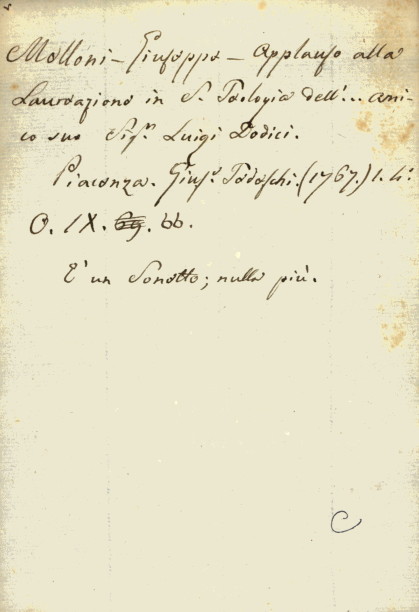 Molloni - Giuseppe - Applauso alla
Laureazione in S. Teologia dell'... ami-
co suo Sig.r Luigi Dodici.
Piacenza. Gius.e Tedeschi. (1767.) 1. 4.o
O. IX. 69. 66.
E' un Sonetto; nulla più.
C